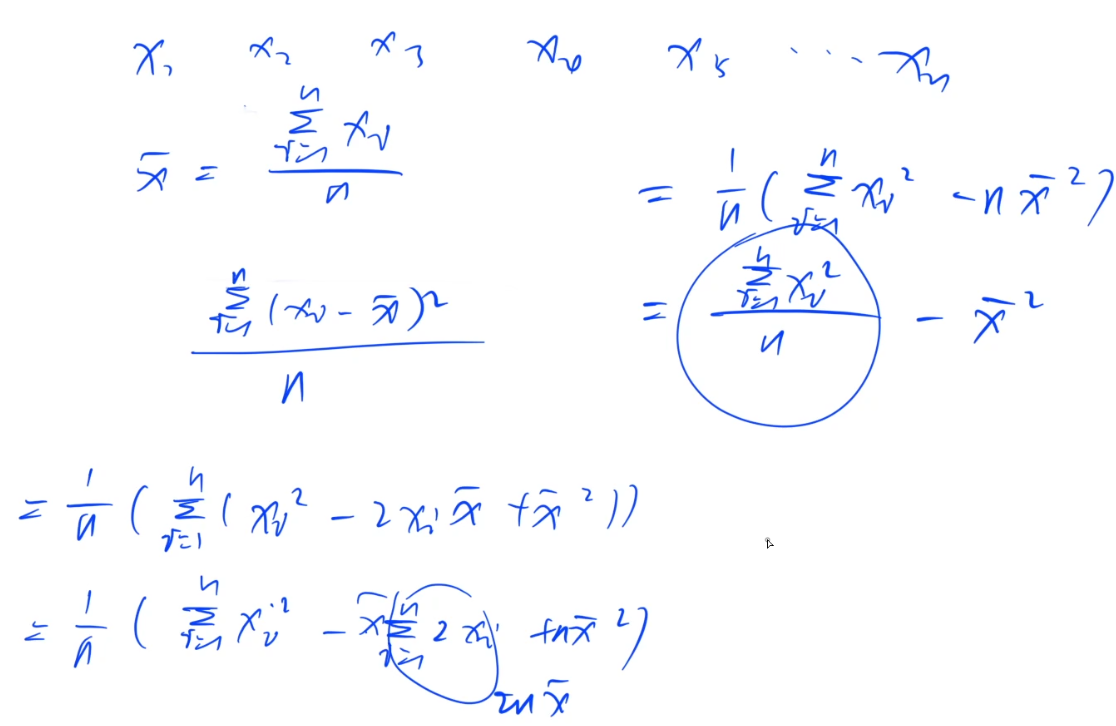 x₁ x₂ x₃ x₄ x₅ ... xₙ
x̄ = (∑_{i=1}^{n} xᵢ) / n
(∑_{i=1}^{n} (xᵢ - x̄)²) / n
= 1/n (∑_{i=1}^{n} (xᵢ² - 2xᵢx̄ + x̄²))
= 1/n (∑_{i=1}^{n} xᵢ² - x̄ ∑_{i=1}^{n} 2xᵢ + nx̄²)
2nx̄
= 1/n (∑_{i=1}^{n} xᵢ² - nx̄²)
= (∑_{i=1}^{n} xᵢ²) / n - x̄²